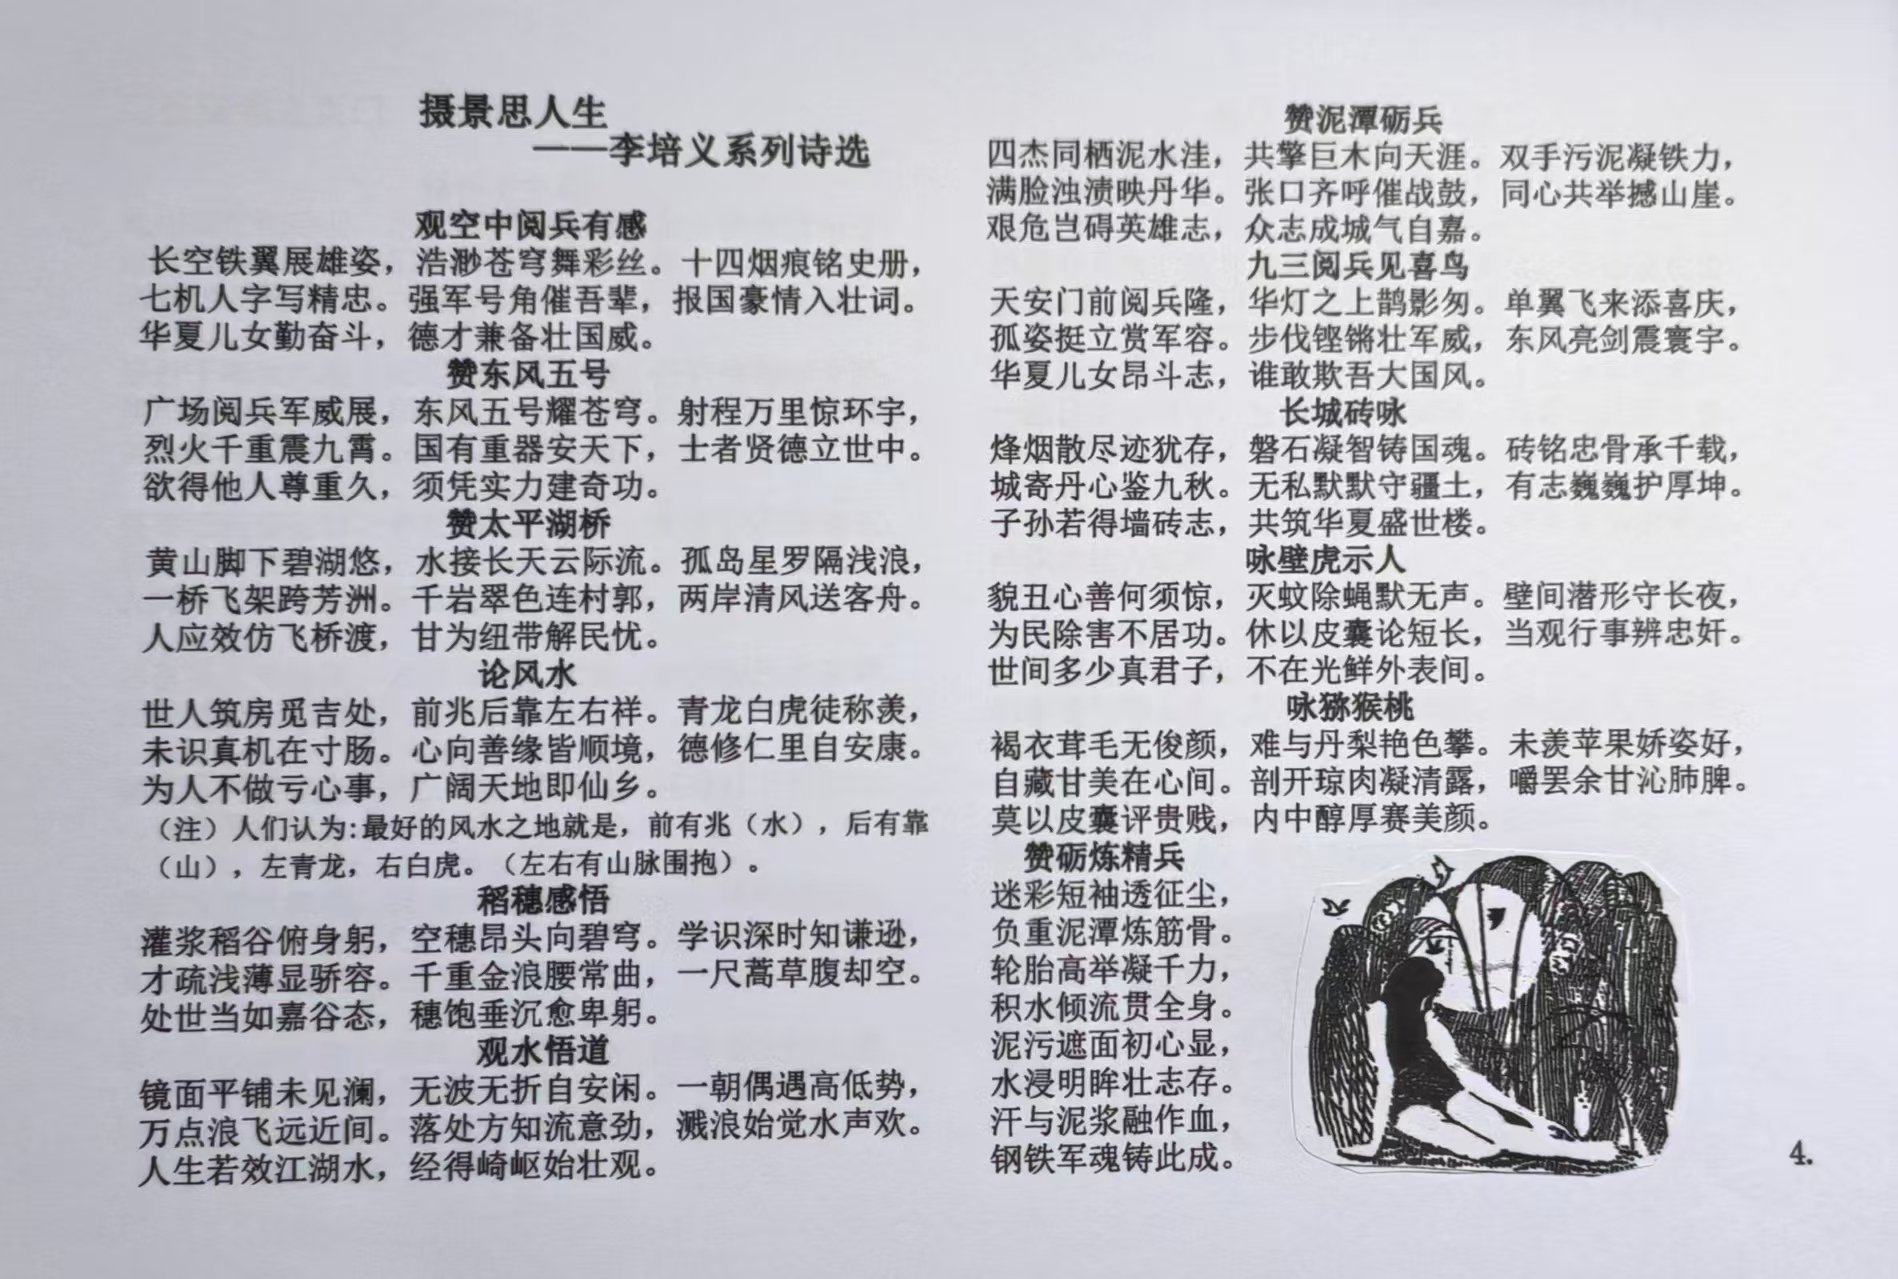 摄景思人生
——李培义系列诗选
观空中阅兵有感
长空铁翼展雄姿，浩渺苍穹舞彩丝。十四烟痕铭史册，
七机人字写精忠。强军号角催吾辈，报国豪情入壮词。
华夏儿女勤奋斗，德才兼备壮国威。
赞东风五号
广场阅兵军威展，东风五号耀苍穹。射程万里惊环宇，
烈火千重震九霄。国有重器安天下，士者贤德立世中。
欲得他人尊重久，须凭实力建奇功。
赞太平湖桥
黄山脚下碧湖悠，水接长天云际流。孤岛星罗隔浅浪，
一桥飞架跨芳洲。千岩翠色连村郭，两岸清风送客舟。
人应效仿飞桥渡，甘为纽带解民忧。
论风水
世人筑房觅吉处，前兆后靠左右祥。青龙白虎徒称羡，
未识真机在寸肠。心向善缘皆顺境，德修仁里自安康。
为人不做亏心事，广阔天地即仙乡。
（注）人们认为:最好的风水之地就是，前有兆（水），后有靠
（山），左青龙，右白虎。（左右有山脉围抱）。
稻穗感悟
灌浆稻谷俯身躬，空穗昂头向碧穹。学识深时知谦逊，
才疏浅薄显骄容。千重金浪腰常曲，一尺蒿草腹却空。
处世当如嘉谷态，穗饱垂沉愈卑躬。
观水悟道
镜面平铺未见澜，无波无折自安闲。一朝偶遇高低势，
万点浪飞远近间。落处方知流意劲，溅浪始觉水声欢。
人生若效江湖水，经得崎岖始壮观。
赞泥潭砺兵
四杰同栖泥水洼，共擎巨木向天涯。双手污泥凝铁力，
满脸浊渍映丹华。张口齐呼催战鼓，同心共举撼山崖。
艰危岂碍英雄志，众志成城气自嘉。
九三阅兵见喜鸟
天安门前阅兵隆，华灯之上鹊影匆。单翼飞来添喜庆，
孤姿挺立赏军容。步伐铿锵壮军威，东风亮剑震寰宇。
华夏儿女昂斗志，谁敢欺吾大国风。
长城砖咏
烽烟散尽迹犹存，磐石凝智铸国魂。砖铭忠骨承千载，
城寄丹心鉴九秋。无私默默守疆土，有志巍巍护厚坤。
子孙若得墙砖志，共筑华夏盛世楼。
咏壁虎示人
貌丑心善何须惊，灭蚊除蝇默无声。壁间潜形守长夜，
为民除害不居功。休以皮囊论短长，当观行事辨忠奸。
世间多少真君子，不在光鲜外表间。
咏猕猴桃
褐衣茸毛无俊颜，难与丹梨艳色攀。未羡苹果娇姿好，
自藏甘美在心间。剖开琼肉凝清露，嚼罢余甘沁肺脾。
莫以皮囊评贵贱，内中醇厚赛美颜。
赞砺炼精兵
迷彩短袖透征尘，
负重泥潭炼筋骨。
轮胎高举凝千力，
积水倾流贯全身。
泥污遮面初心显，
水浸明眸壮志存。
汗与泥浆融作血，
钢铁军魂铸此成。
4.